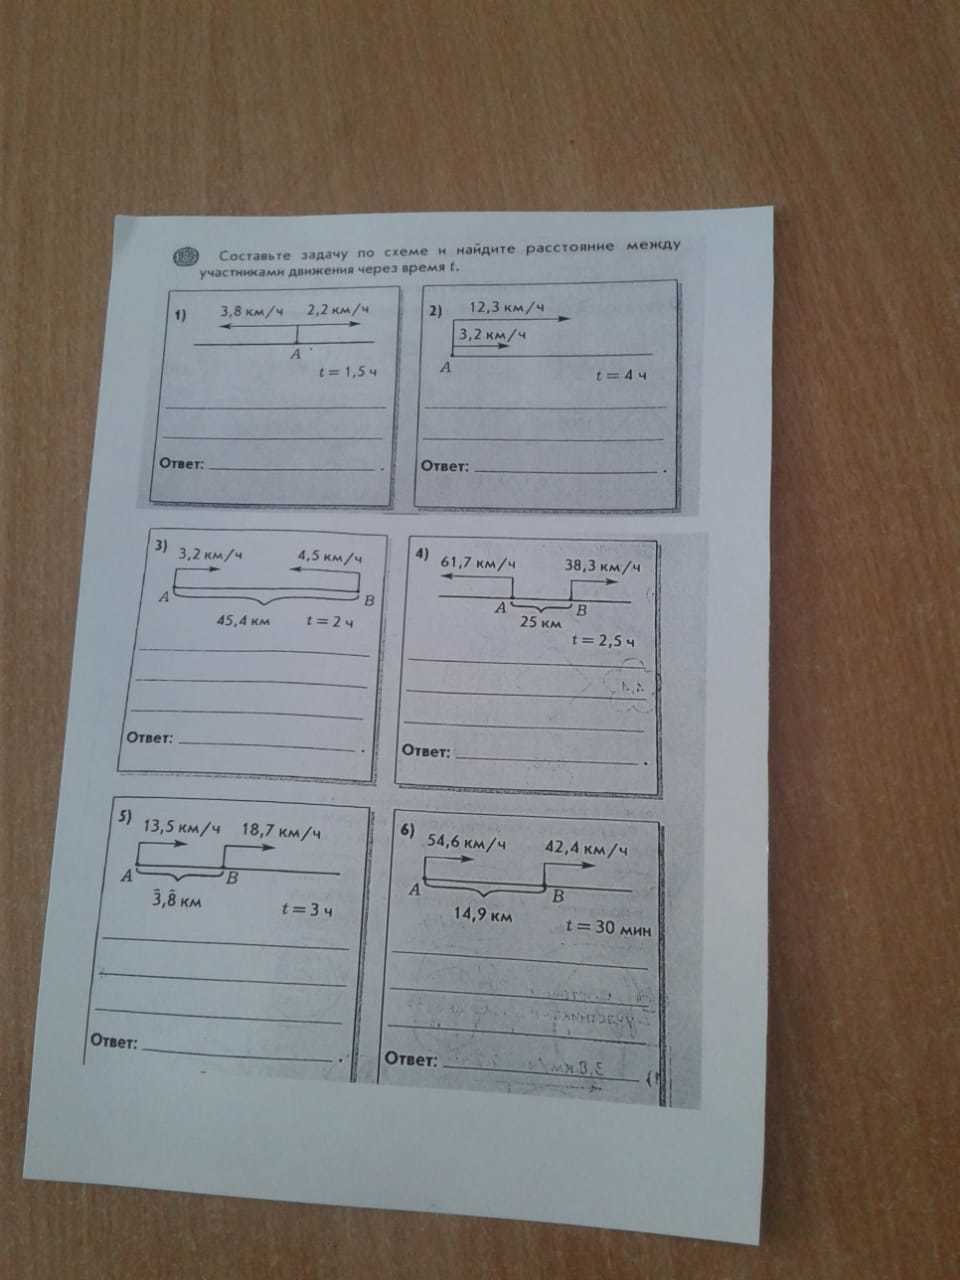 Составьте задачу по схеме и найдите расстояние между
участниками движения через время t.
1)
3,8 км/ч 2,2 км/ч
A
t = 1,5 ч
Ответ: .
2)
12,3 км/ч
3,2 км/ч
A
t = 4 ч
Ответ: .
3)
3,2 км/ч 4,5 км/ч
A B
45,4 км t = 2 ч
Ответ: .
4)
61,7 км/ч 38,3 км/ч
A B
25 км
t = 2,5 ч
Ответ: .
5)
13,5 км/ч 18,7 км/ч
A B
3,8 км t = 3 ч
Ответ: .
6)
54,6 км/ч 42,4 км/ч
A B
14,9 км t = 30 мин
Ответ: